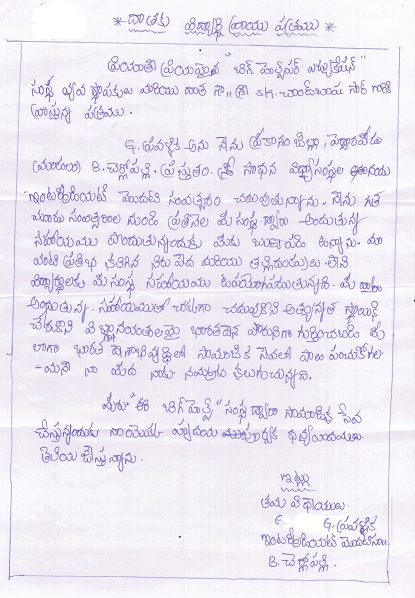 * దాతకు విద్యార్థి వ్రాయు పత్రము *
ప్రియాతి ప్రియమైన "బిగ్ హెల్ప్ ఫర్ ఎడ్యుకేషన్"
సంస్థ వ్యవస్థాపకులు మరియు దాత గౌ||శ్రీ SK. చాంద్ బాషా సార్ గారికి
వ్రాస్తున్న పత్రము.
G. ప్రవళ్లిక అను నేను ప్రకాశం జిల్లా, పెద్దారవీడు
(మండలం) B. చెర్లోపల్లి. ప్రస్తుతం. శ్రీ సాధన విద్యాసంస్థల నందు
ఇంటర్మీడియట్ మొదటి సంవత్సరం చదువుతున్నాను. నేను గత
మూడు సంవత్సరాల నుండి ప్రతినెల మీ సంస్థ ద్వారా అందుతున్న
సహాయము పొందుతున్నందుకు మీకు ఋణపడి ఉన్నాను. మా
వంటి ప్రతిభ కలిగిన నిరు పేద మరియు తల్లిదండ్రులు లేని
విద్యార్థులకు మీ సంస్థ సహాయము ఉపయోగపడుతున్నది. మీ ద్వారా
అందుతున్న సహాయముతో చక్కగా చదువుకొని అత్యున్నత స్థాయికి
చేరుకొని విజ్ఞానవంతులమై భారతదేశ పౌరునిగా గుర్తించబడి మీ
లాగా భారత దేశాభివృద్ధిలో సామాజిక సేవలో పాలు పంచుకోగల
-మని నా మీద నాకు నమ్మకం కలుగుచున్నది.
మీరు "ఈ బిగ్ హెల్ప్" సంస్థ ద్వారా సామాజిక సేవ
చేస్తున్నందుకు నాయొక్క హృదయ పూర్వక ధన్యవాదములు
తెలియ చేస్తున్నాను.
ఇట్లు
తమ విధేయులు
G. ప్రవళ్లిక
ఇంటర్మీడియట్ మొదటి సం||
B. చెర్లోపల్లి.